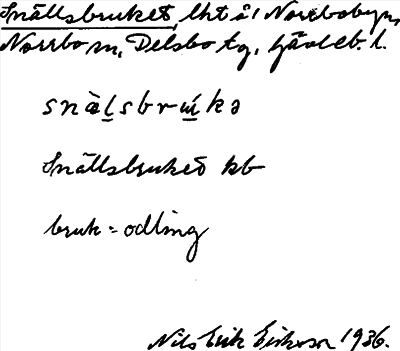 Snällsbruket, lht å1 Norrbobyn,
Norrbo sn, Delsbo tg, Gävleb. l.
snàlsbrúkə
Snällsbruket kb
bruk = odling
Nils Erik Eriksson 1936.